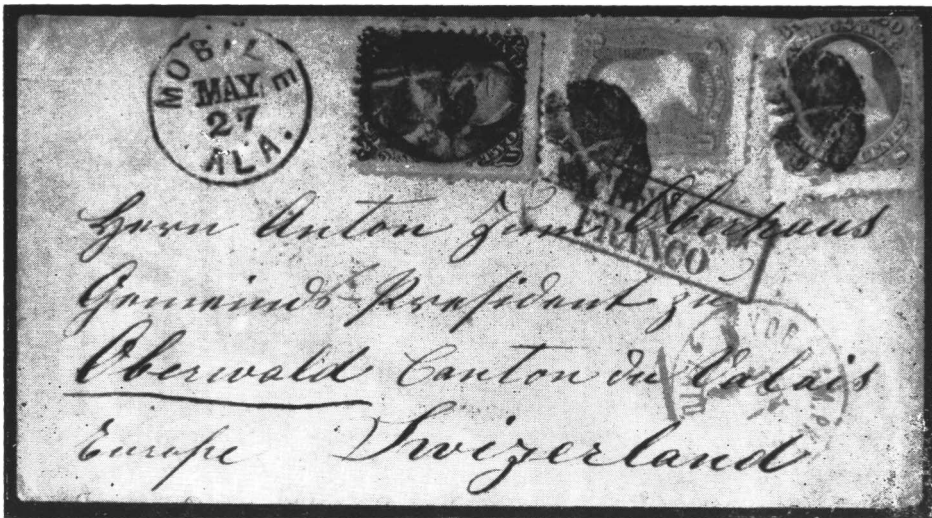 MOBILE
MAY
27
ALA.
FRANCO
Herrn Anton Zum Oberhaus
Gemeinds-President zu
Oberwald Canton du Valais
Europe Swizerland